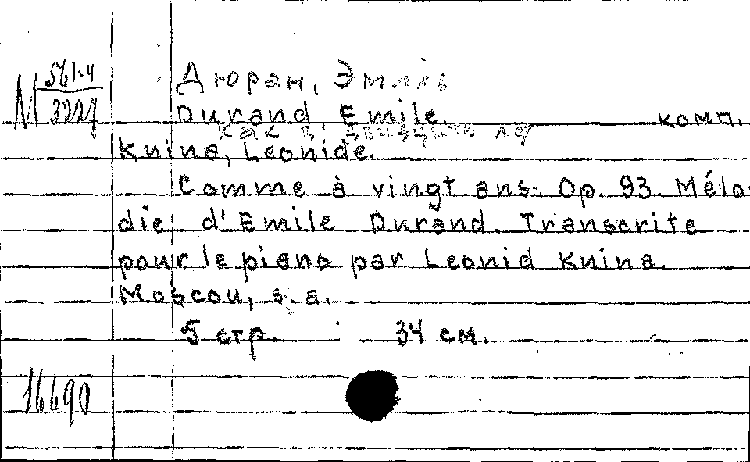 М 561-4
3227
Дюран, Эмиль
Durand, Emile.
комп.
Knina, Leonide.
Comme à vingt ans. Op. 93. Mélo-
die d'Emile Durand. Transcrite
pour le piano par Leonid Knina.
Moscou, s.a.
5 стр. 34 см.
16690